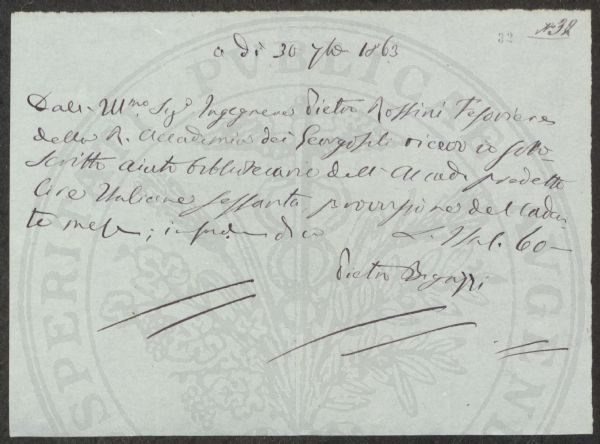 32 N° 32
a dì 30 7bre 1863
Dall' Illmo Sigr Ingegnere Pietro Rossini Tesoriere
della R. Accademia dei Georgofili ricevo io sotto
scritto aiuto bibliotecario dell' Accad. predetta
Lire Italiane sessanta provvisione del caden
te mese; in fede dico L. Ital. 60 —
Pietro Bigazzi
PVBLICAE
SPERI